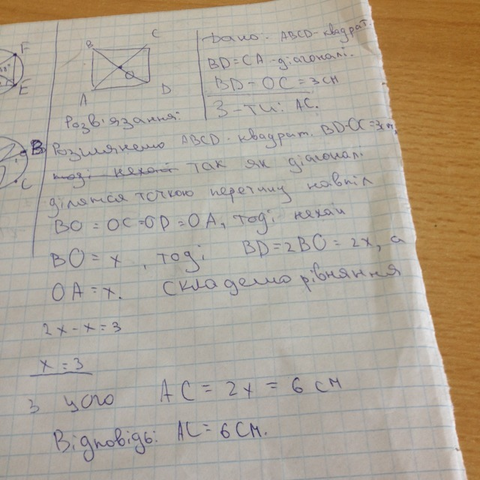 F
E
B
C
A
D
O
Дано: ABCD-квадрат
BD=CA-діагоналі.
BD-OC=3см
З-ти: AC.
Розв'язання:
B
C
Розглянемо ABCD-квадрат. BD-OC=3см
тоді нехай так як діагоналі
діляться точкою перетину навпіл
BO=OC=OD=OA, тоді нехай
BO=x, тоді BD=2BO=2x, а
OA=x. Складемо рівняння
2x-x=3
x=3
З цього AC=2x=6 см
Відповідь: AC=6см.